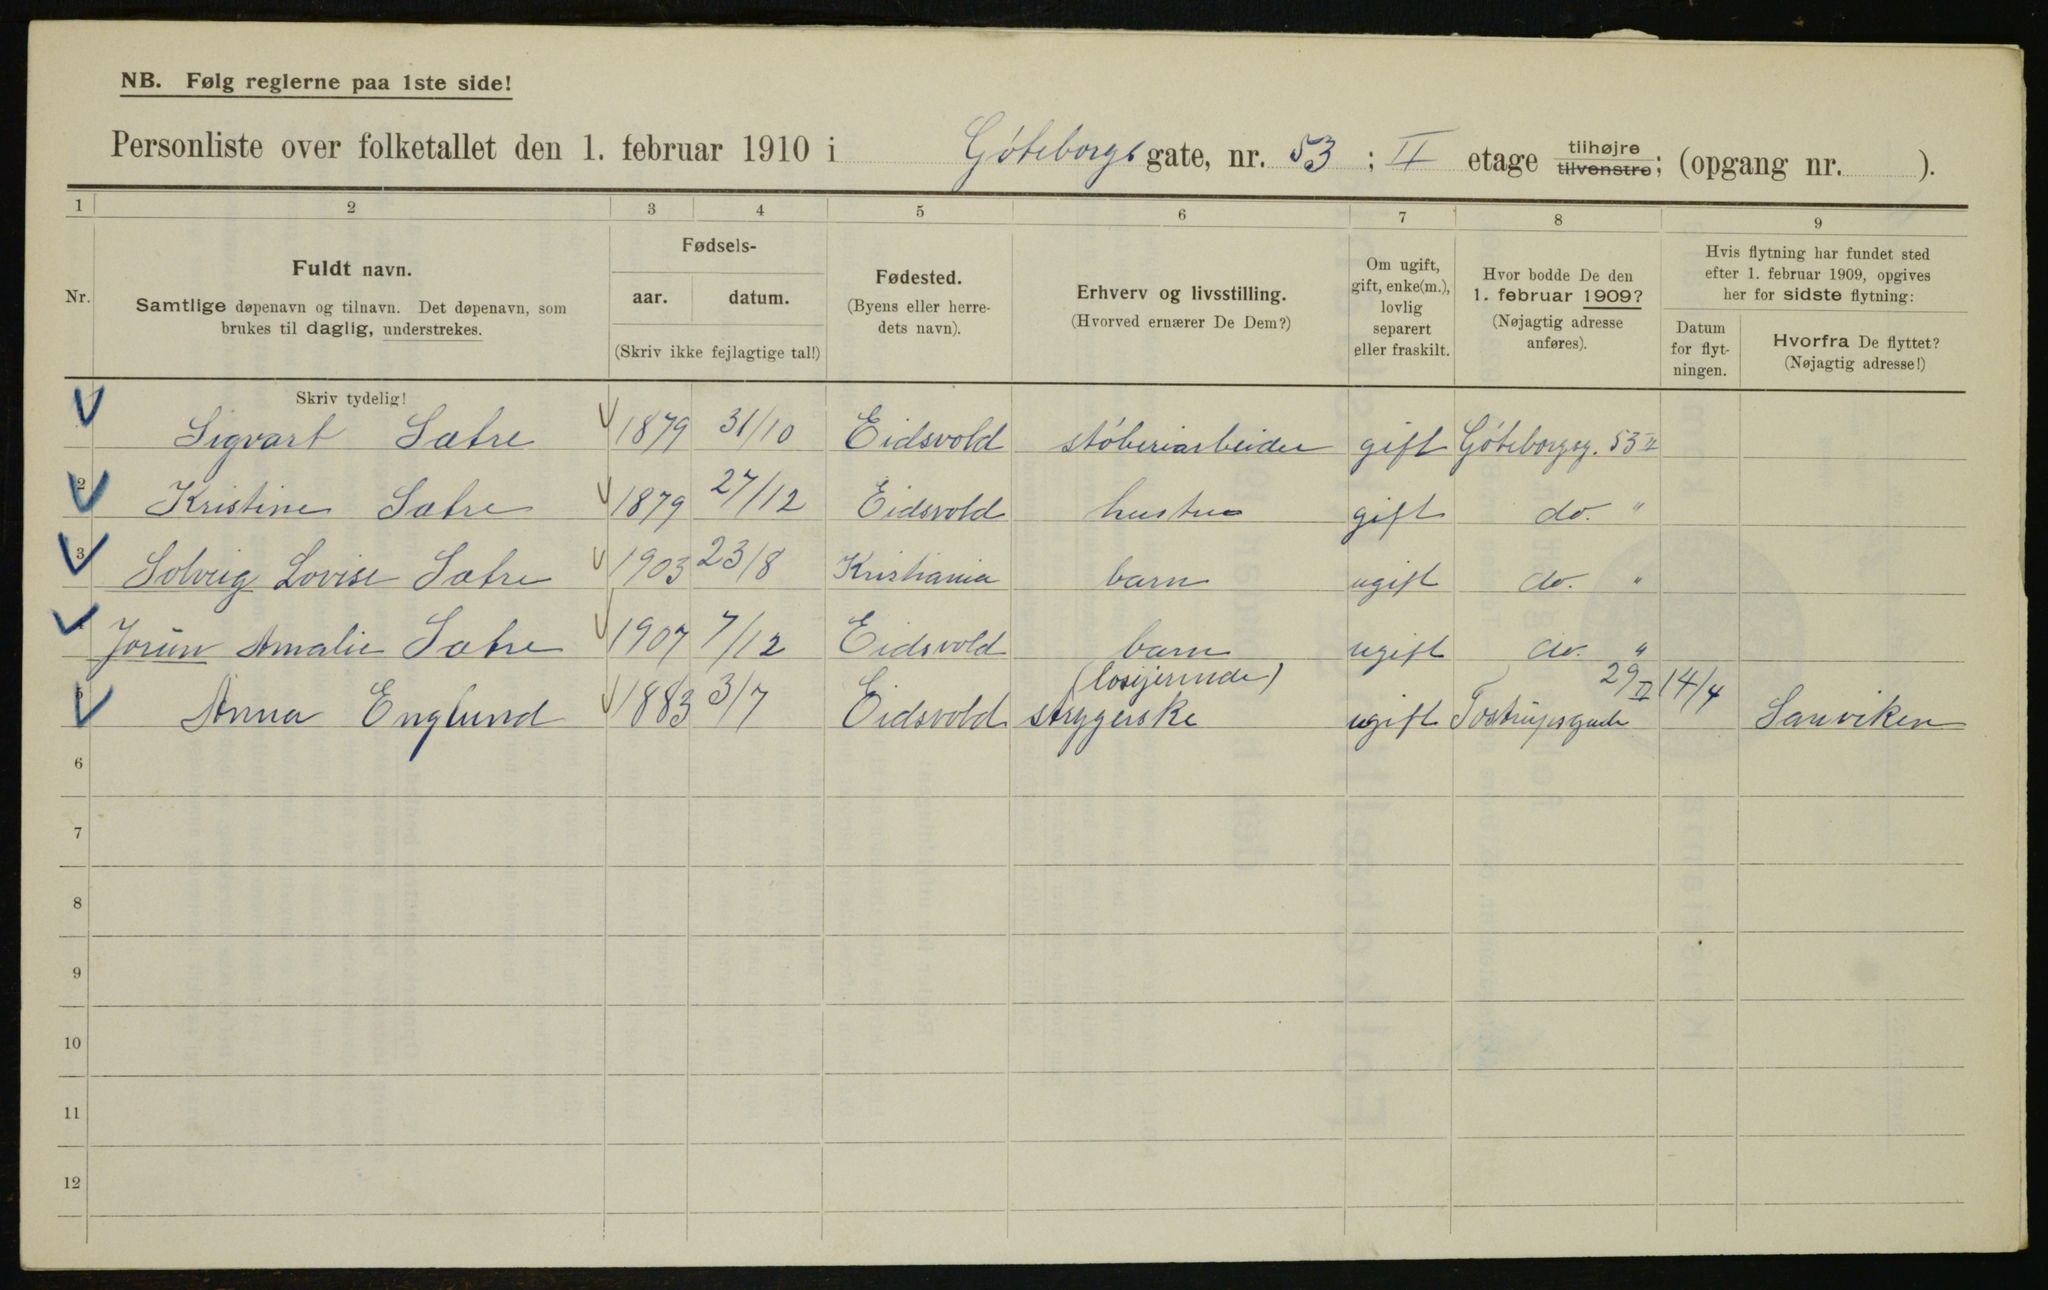 NB. Følg reglerne paa 1ste side!
Personliste over folketallet den 1. februar 1910 i Göteborgs gate, nr. 53; II etage tilhøjre tilvenstre; (opgang nr. ).
1 2 3 4 5 6 7 8 9
Nr.
Fuldt navn.
Samtlige døpenavn og tilnavn. Det døpenavn, som
brukes til daglig, understrekes.
Fødsels-
aar. datum.
(Skriv ikke fejlagtige tal!)
Fødested.
(Byens eller herre-
dets navn).
Erhverv og livsstilling.
(Hvorved ernærer De Dem?)
Om ugift,
gift, enke(m.),
lovlig
separert
eller fraskilt.
Hvor bodde De den
1. februar 1909?
(Nøjagtig adresse
anføres).
Hvis flytning har fundet sted
efter 1. februar 1909, opgives
her for sidste flytning:
Datum
for flyt-
ningen.
Hvorfra De flyttet?
(Nøjagtig adresse!)
Skriv tydelig!
Sigvart Sætre 1879 31/10 Eidsvold støberiarbeider gift Göteborgsg. 53 II
2 Kristine Sætre 1879 27/12 Eidsvold hustru gift do. "
3 Solveig Lovise Sætre 1903 23/8 Kristiania barn ugift do. "
4 Jorun Amalie Sætre 1907 7/12 Eidsvold barn ugift do. "
(losjerende) 29 II
5 Anna Englund 1883 3/7 Eidsvold strygerske ugift Tostrupsgade 14/4 Sanviken
6
7
8
9
10
11
12